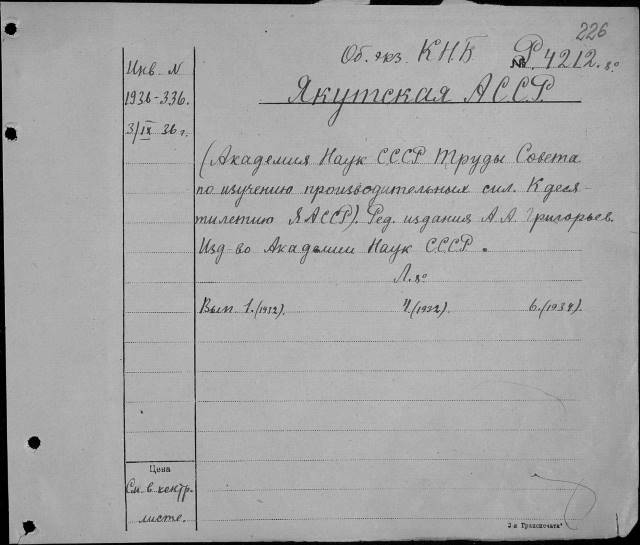 226
Об. экз. КНБ № Р 4212.8º
Инв. N
1936-336.
3/IX 36 г.
Якутская АССР.
(Академия Наук СССР Труды Совета
по изучению производительных сил. К деся-
тилетию ЯАССР). Ред. издания А.А. Григорьев.
Изд-во Академии Наук СССР.
Л. 8º
Вып 1. (1932). 4. (1932) 6. (1934).
Цена
См. в контр.
листе.
3-я Транспечать